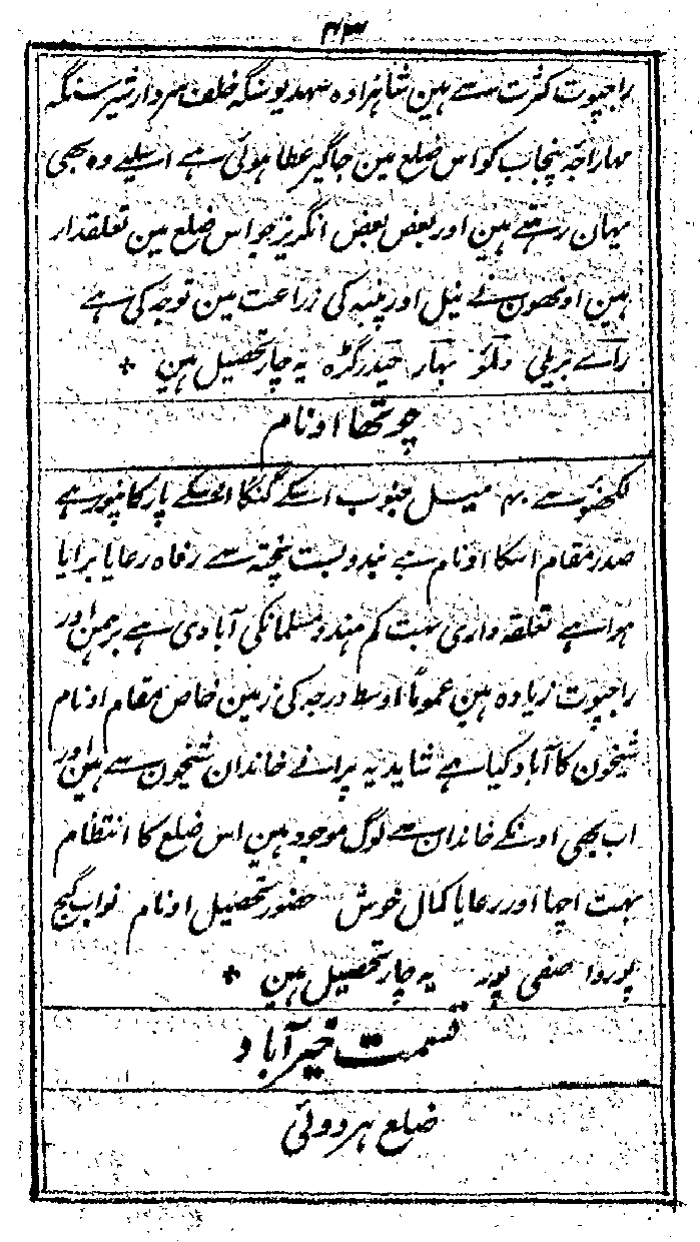 ۴۳
راجپوت کثرت سے ہین شاہزادہ سہدیوسنگہ خلف سردار شیر سنگہ
مہاراجہ پنجاب کو اس ضلع مین جاگیر عطا ہوئی ہے اسلیے وہ بھی
یہان رہتے ہین اور بعض بعض انگریز جو اس ضلع مین تعلقدار
ہین اونھون نے نیل اور پنبہ کی زراعت مین توجہ کی ہے
راے بریلی دلمؤ بہار حیدرگڑہ یہ چار تحصیل ہین +
چوتھا اونام
لکھنؤ سے ۴۰ میل جنوب اسکے گنگا اسکے پار کانپور ہے
صدر مقام اسکا اونام ہے بندوبست پختہ سے رفاہ رعایا برایا
ہوا ہے تعلقہ داری بہت کم ہندو مسلمانکی آبادی ہے برہمن اور
راجپوت زیادہ ہین عموماً اوسط درجہ کی زمین خاص مقام اونام
شیخون کا آباد کیا ہے شاید یہ پرانے خاندان شیخون سے ہین اور
اب بھی اونکے خاندان سے لوگ موجود ہین اس ضلع کا انتظام
بہت اچھا اور رعایا کمال خوش حضور تحصیل اونام نواب گنج
پوروا صفی پور یہ چار تحصیل ہین +
قسمت خیرآباد
ضلع ہردوئی